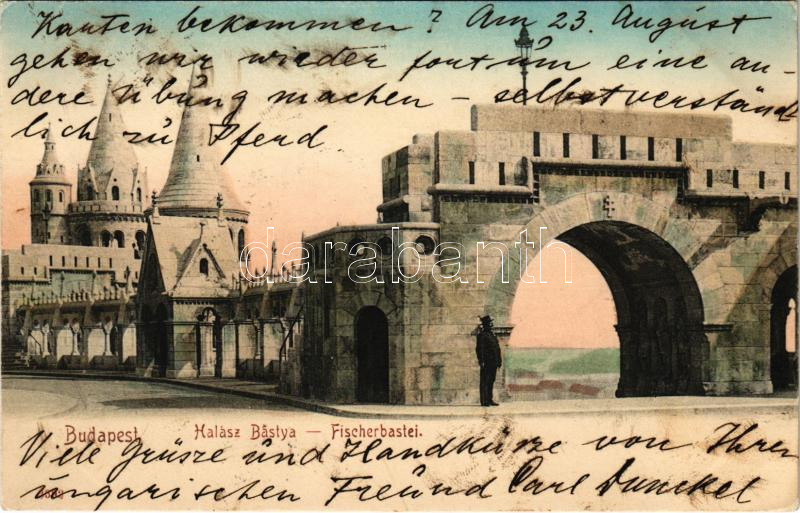 Karten bekommen? Am 23. August
gehen wir wieder fort um eine an-
dere Übung machen – selbstverständ
lich zu Pferd
darabanth
Budapest. Halász Bástya — Fischerbastei.
Viele Grüsze und Handküsze von Ihren
ungarischen Freund Carl Dunckel